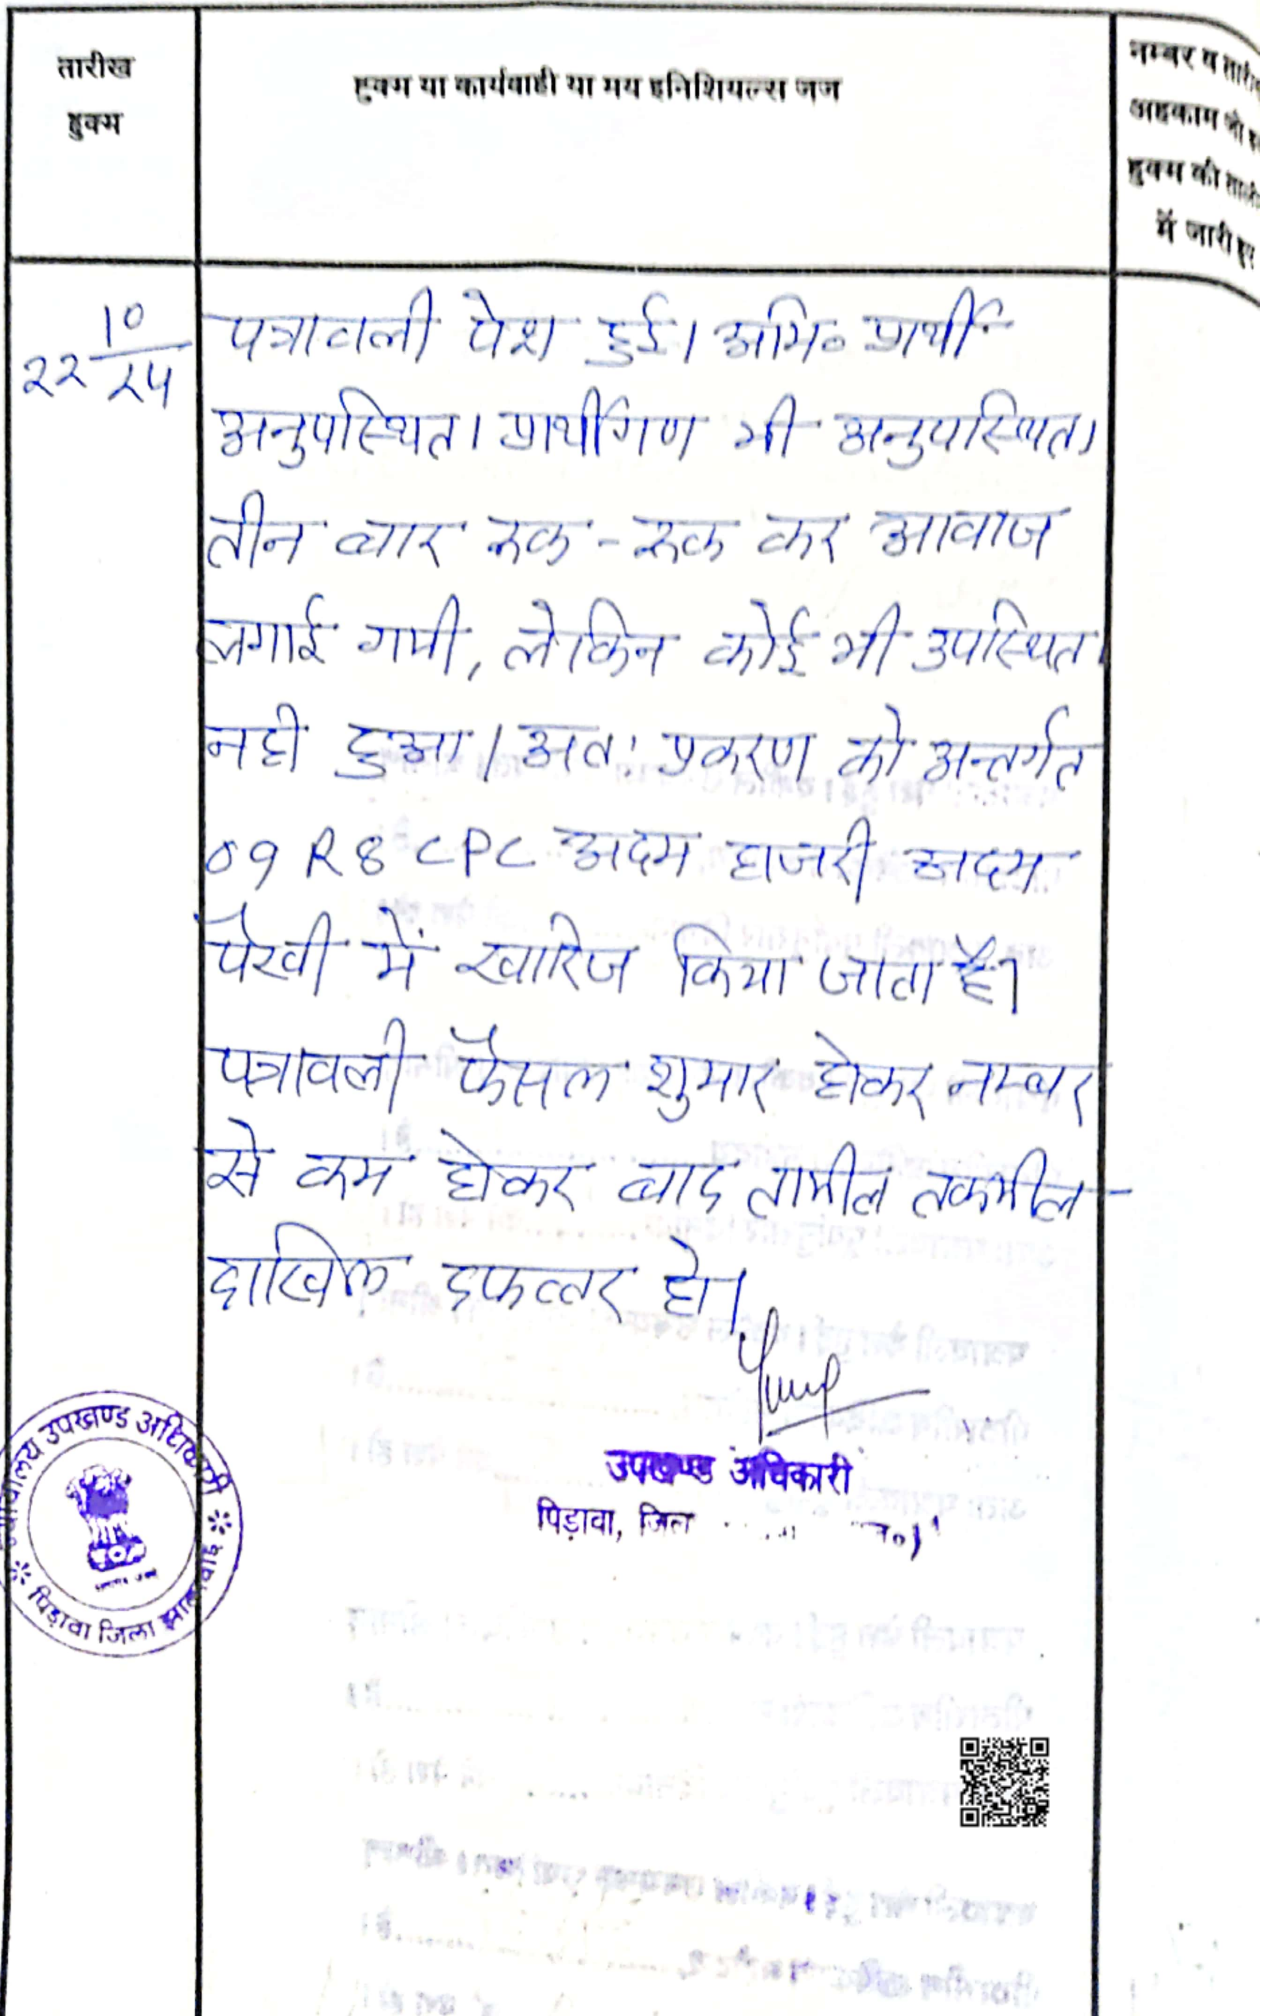 तारीख
हुक्म
हुक्म या कार्यवाही या मय इनिशियल्स जज
नम्बर व
अहकाम जो
हुक्म की
में जारी हुए
22 10/25
पत्रावली पेश हुई। अभि० प्रार्थी
अनुपस्थित। प्रार्थीगण भी अनुपस्थित।
तीन बार रूक-रूक कर आवाज
लगाई गयी, लेकिन कोई भी उपस्थित
नही हुआ। अतः प्रकरण को अन्तर्गत
09 R8 CPC अदम हाजरी अदम
पैरवी में खारिज किया जाता है।
पत्रावली फैसल शुमार होकर नम्बर
से कम होकर बाद तामील तकमील
दाखिल दफ्तर हो।
उपखण्ड अधिकारी
पिड़ावा, जिला
न्यायालय उपखण्ड अधिकारी
पिड़ावा जिला झालावाड़